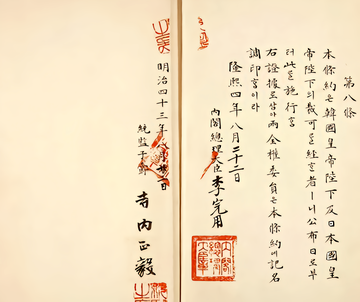 第八條
本條約은韓國皇帝陛下及日本國皇
帝陛下의裁可를經한者ㅣ니公布日로부
터此를施行홈
右證據로삼아兩全權委員은本條約에記名
調印홈이라
隆熙四年八月二十二日
內閣總理大臣 李完用
明治四十三年八月廿二日
統監子爵 寺內正毅